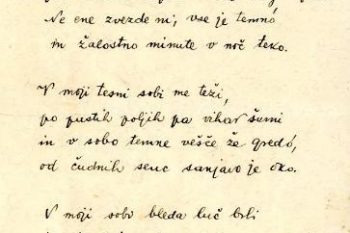 Ne ene zvezde ni, vse je temnó
in žalostno minute v noč teko.
V moji tesni sobi me teži,
po pustih poljih pa vihar šumi
in v sobo temne vešče že gredó,
od čudnih senc sanjavo je oko.
V moji sobi bleda luč brli